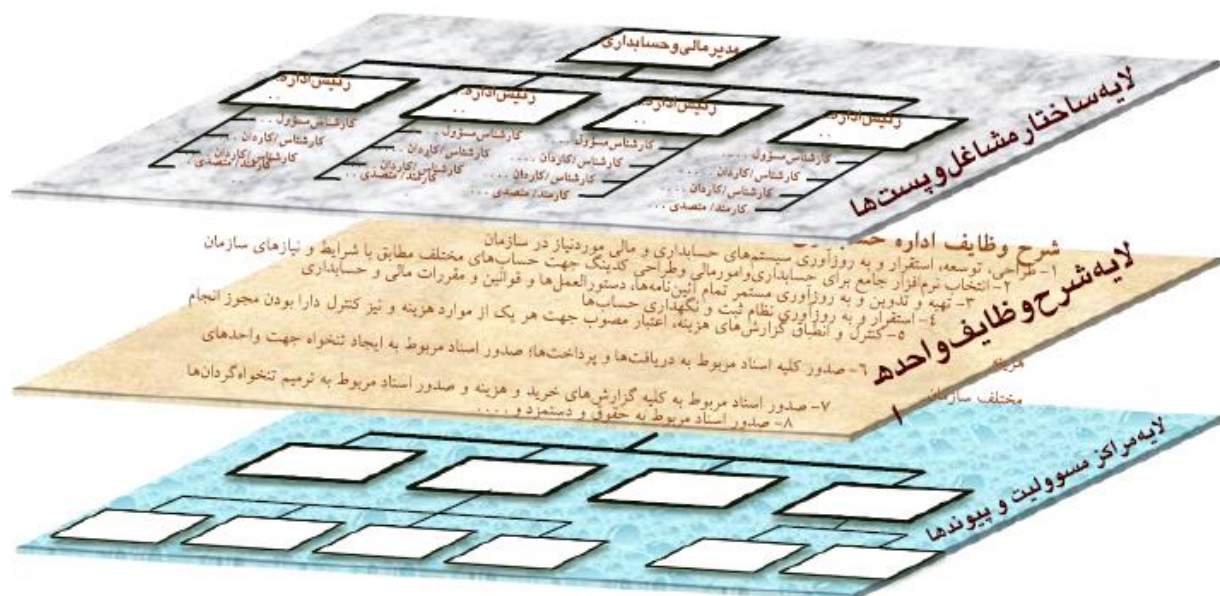 مدیر مالی و حسابداری
رئیس اداره..
. .
رئیس اداره..
. .
رئیس اداره..
. .
رئیس اداره..
. .
کارشناس مسؤول . . . .
کارشناس/کاردان . . . .
کارشناس/کاردان . . . .
کارمند/ متصدی . . .
کارشناس مسؤول . . .
کارشناس/کاردان . . . .
کارشناس/کاردان . . . .
کارمند/ متصدی . . .
کارشناس مسؤول . .
کارشناس/کاردان . .
کارشناس/کاردان . .
کارمند/ متصدی . .
کارشناس مسؤول . .
کارشناس/کاردان . .
کارشناس/کاردان . .
کارمند/ متصدی . .
. . .
لایه ساختار مشاغل و پست‌ها
شرح وظایف اداره
۱- طراحی، توسعه، استقرار و به روزآوری سیستم‌های حسابداری و مالی موردنیاز در سازمان
۲- انتخاب نرم‌افزار جامع برای حسابداری‌وامورمالی وطراحی کدینگ جهت حساب‌های مختلف مطابق با شرایط و نیازهای سازمان
۳- تهیه و تدوین و به روزآوری مستمر تمام آئین‌نامه‌ها، دستورالعمل‌ها و قوانین و مقررات مالی و حسابداری
۴- استقرار و به روزآوری نظام ثبت و نگهداری حساب‌ها
۵- کنترل و انطباق گزارش‌های هزینه، اعتبار مصوب جهت هر یک از موارد هزینه و نیز کنترل دارا بودن مجوز انجام
هزینه
۶- صدور کلیه اسناد مربوط به دریافت‌ها و پرداخت‌ها؛ صدور اسناد مربوط به ایجاد تنخواه جهت واحدهای
مختلف سازمان
۷- صدور اسناد مربوط به کلیه گزارش‌های خرید و هزینه و صدور اسناد مربوط به ترمیم تنخواه‌گردان‌ها
۸- صدور اسناد مربوط به حقوق و دستمزد و . . . .
لایه شرح وظایف واحدها
لایه مراکز مسوولیت و پیوندها